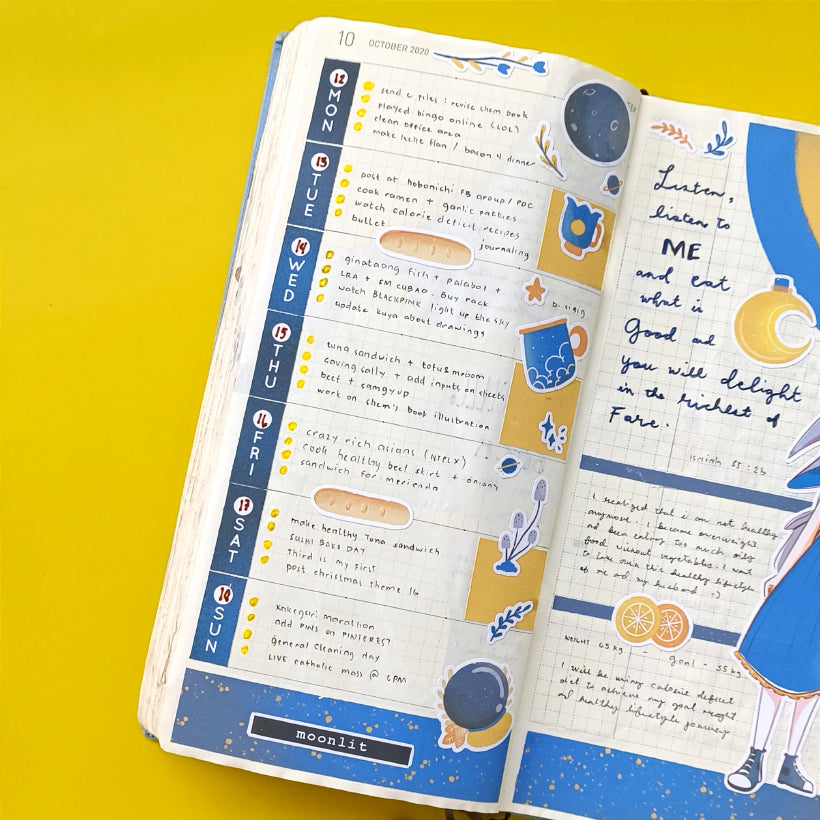 10 OCTOBER 2020
12
MON
send e files : revise chem book
played bingo online (LOL)
clean office area
make leche flan / bacon 4 dinner
13
TUE
post at hobonichi FB group / PDC
cook ramen + garlic patties
watch calorie deficit recipes
bullet journaling
14
WED
ginataang fish + palabok +
LRA + SM CUBAO . Buy rack
watch BLACKPINK light up the sky
update kuya about drawings
15
THU
tuna sandwich +
saving sally + add inputs on sheets
beef + samgyup
work on chem's book illustration
16
FRI
crazy rich asians (NFLX)
cook healthy beef + onions
sandwich for merienda
17
SAT
make healthy tuna sandwich
SUSHI BAKE DAY
third is my first
post christmas theme 16
18
SUN
kakegurui marathon
add PINS on PINTEREST
general cleaning day
LIVE catholic mass @ 6PM
moonlit
Listen,
listen to
ME
and eat
what is
Good and
you will delight
in the richest of
Fare.
Isaiah 55:2b
I realized that i am not healthy
anymore. I become overweight
and been eating too much oily
food without vegetables. I want
to this healthy lifestyle
of me and my husband =)
WEIGHT 65 kg - goal - 55 kg
I will be using calorie deficit
diet to achieve my goal weight
and healthy lifestyle journey